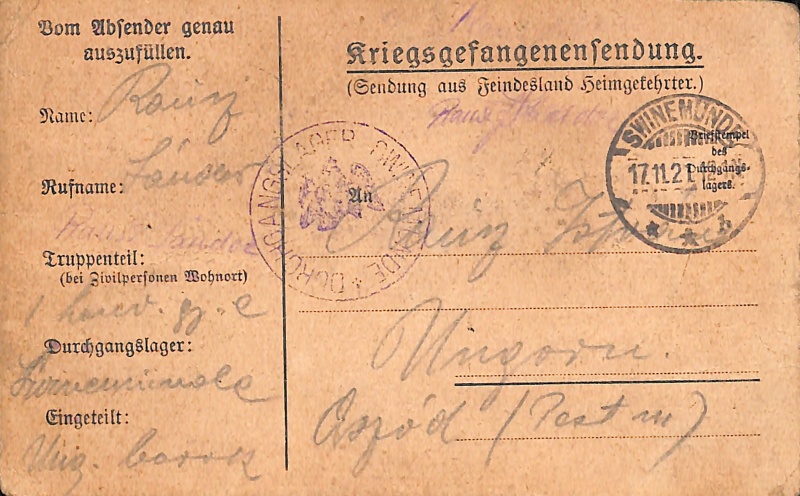 Vom Absender genau
auszufüllen.
Name: Rainz
Sándor
Rufname:
Truppenteil:
(bei Zivilpersonen Wohnort)
1 honv. gy. e
Durchgangslager:
Swinemünde
Eingeteilt:
Ung. barak
Kriegsgefangenensendung.
(Sendung aus Feindesland Heimgekehrter.)
DURCHGANGSLAGER SWINEMÜNDE
An
SWINEMÜNDE
17.11.21
Briefstempel
des
Durchgangs-
lagers.
Rainz
Ungarn
Aszód (Pest m)